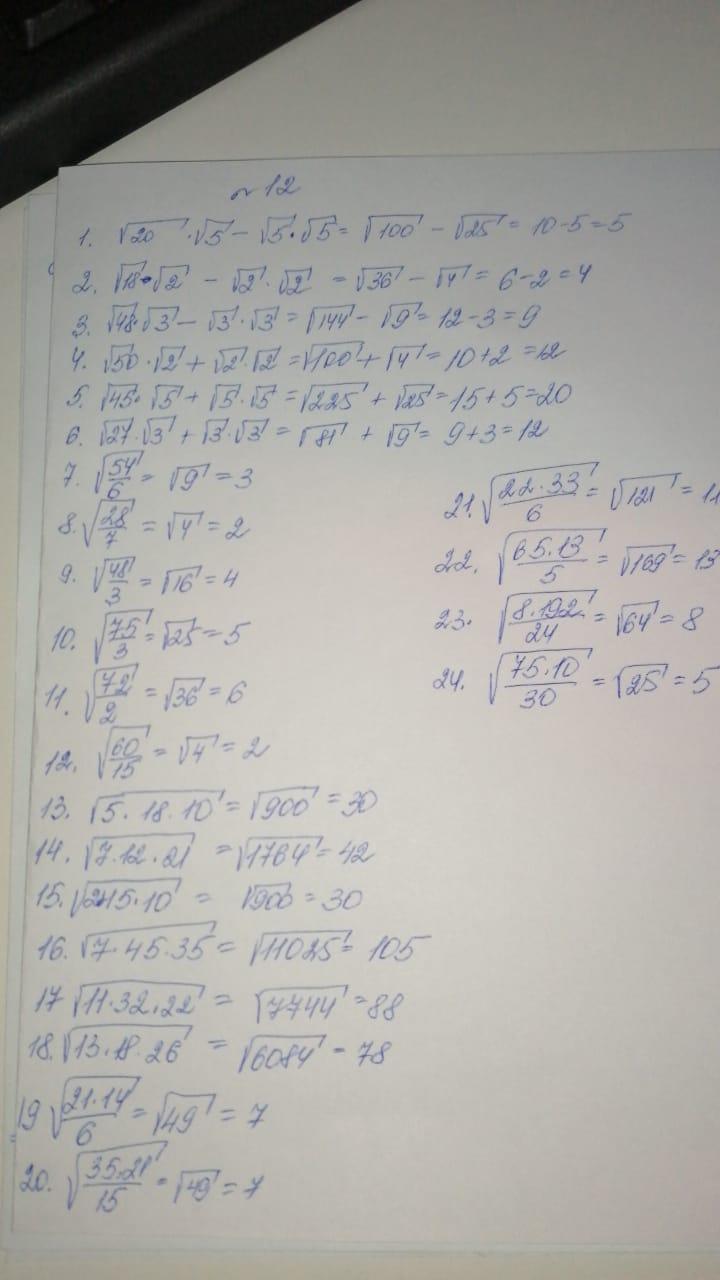 №12
1. √20 · √5 − √5 · √5 = √100 − √25 = 10 − 5 = 5
2. √18 · √2 − √2 · √2 = √36 − √4 = 6 − 2 = 4
3. √48 · √3 − √3 · √3 = √144 − √9 = 12 − 3 = 9
4. √50 · √2 + √2 · √2 = √100 + √4 = 10 + 2 = 12
5. √45 · √5 + √5 · √5 = √225 + √25 = 15 + 5 = 20
6. √27 · √3 + √3 · √3 = √81 + √9 = 9 + 3 = 12
7. √(54/6) = √9 = 3
8. √(28/7) = √4 = 2
9. √(48/3) = √16 = 4
10. √(75/3) = √25 = 5
11. √(72/2) = √36 = 6
12. √(60/15) = √4 = 2
13. √(5 · 18 · 10) = √900 = 30
14. √(7 · 12 · 21) = √1764 = 42
15. √(2 · 45 · 10) = √900 = 30
16. √(7 · 45 · 35) = √11025 = 105
17 √(11 · 32 · 22) = √7744 = 88
18. √(13 · 18 · 26) = √6084 = 78
19 √(21 · 14/6) = √49 = 7
20. √(35 · 21/15) = √49 = 7
21. √(22 · 33/6) = √121 = 11
22. √(65 · 13/5) = √169 = 13
23. √(8 · 192/24) = √64 = 8
24. √(75 · 10/30) = √25 = 5